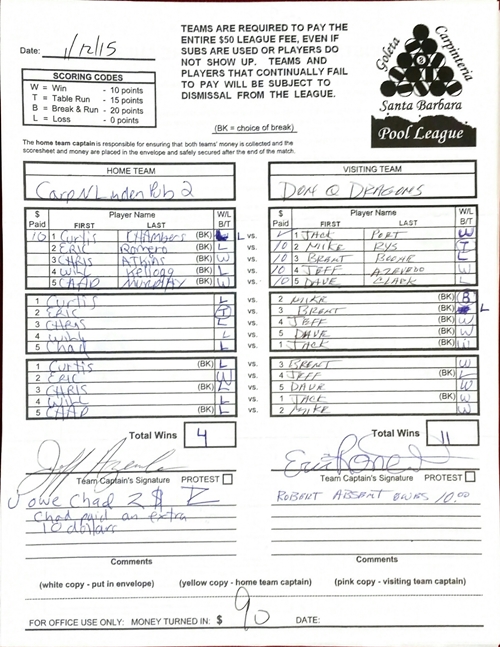 TEAMS ARE REQUIRED TO PAY THE
ENTIRE $50 LEAGUE FEE, EVEN IF
SUBS ARE USED OR PLAYERS DO
NOT SHOW UP. TEAMS AND
PLAYERS THAT CONTINUALLY FAIL
TO PAY WILL BE SUBJECT TO
DISMISSAL FROM THE LEAGUE.
Date: 1/12/15
SCORING CODES
W = Win - 10 points
T = Table Run - 15 points
B = Break & Run - 20 points
L = Loss - 0 points
Goleta Carpinteria
Santa Barbara
Pool League
(BK = choice of break)
The home team captain is responsible for ensuring that both teams' money is collected and the
scoresheet and money are placed in the envelope and safely secured after the end of the match.
HOME TEAM VISITING TEAM
CarpNLindenPub 2 DOM Q DRAGONS
$ Paid Player Name FIRST LAST W/L B/T $ Paid Player Name FIRST LAST W/L B/T
10 1 Curtis Chambers (BK) L vs. 1 JACK PORT W
2 ERIC Romero L vs. 10 2 MIKE RYS T
3 CHRIS Atkins W vs. 10 3 BRENT BOCHE L
4 WILL Kellogg L vs. 10 4 JEFF AZEVEDO W
5 CHAD MURPHY W vs. 10 5 DAVE CLARK L
1 Curtis L vs. 2 MIKE (BK) B
2 ERIC T vs. 3 BRENT (BK) L
3 CHRIS L vs. 4 JEFF (BK) W
4 Will L vs. 5 DAVE (BK) W
5 Chad L vs. 1 JACK (BK) W
1 Curtis (BK) L vs. 3 BRENT W
2 ERIC W vs. 4 JEFF (BK) L
3 CHRIS (BK) L vs. 5 DAVE W
4 WILL L vs. 1 JACK (BK) W
5 CHAD (BK) L vs. 2 MIKE W
Total Wins 4 Total Wins 11
Team Captain's Signature PROTEST Team Captain's Signature PROTEST
owe Chad 2 $ ROBERT ABSENT OWES 10.00
Chad paid an extra
10 dollars
Comments Comments
(white copy - put in envelope) (yellow copy - home team captain) (pink copy - visiting team captain)
FOR OFFICE USE ONLY: MONEY TURNED IN: $ 90 DATE: